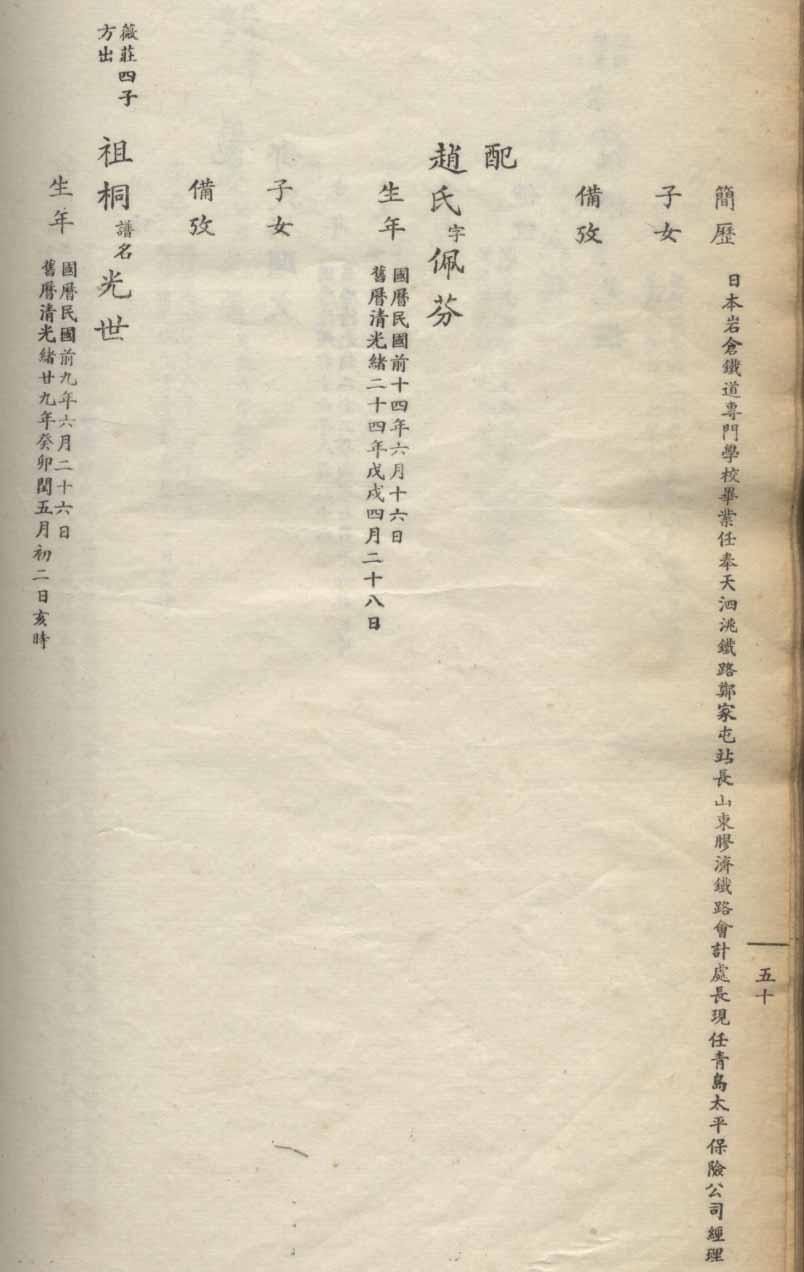 五十
簡歷
日本岩倉鐵道專門學校畢業任奉天泗洮鐵路鄭家屯站長山東膠濟鐵路會計處長現任青島太平保險公司經理
子女
備攷
配
趙氏字佩芬
生年
國曆民國前十四年六月十六日
舊曆清光緒二十四年戊戌四月二十八日
子女
備攷
薇莊四子
方出
祖桐譜名光世
生年
國曆民國前九年六月二十六日
舊曆清光緒廿九年癸卯閏五月初二日亥時